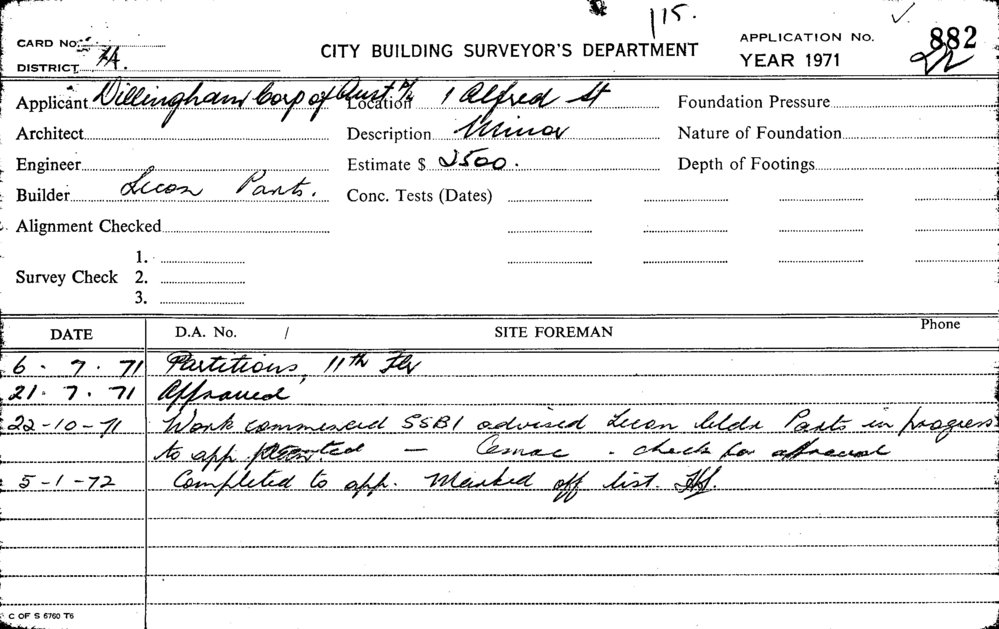 115.
CARD No.
DISTRICT 7A.
CITY BUILDING SURVEYOR'S DEPARTMENT
APPLICATION No. 882
YEAR 1971
Applicant Dillingham Corp of Aust P/L Location 1 Alfred St Foundation Pressure
Architect Description Minor Nature of Foundation
Engineer Estimate $ 2500. Depth of Footings
Builder Lecon Parts. Conc. Tests (Dates)
Alignment Checked
1.
Survey Check 2.
3.
DATE D.A. No. / SITE FOREMAN Phone
6. 7. 71 Partitions, 11th Flr
21. 7. 71 Approved
22-10-71 Work commenced SSBI advised Lecon bldr Parts in progress
to app - Cemac - check for approval
5-1-72 Completed to app. Marked off list.
C OF S 6760 T6